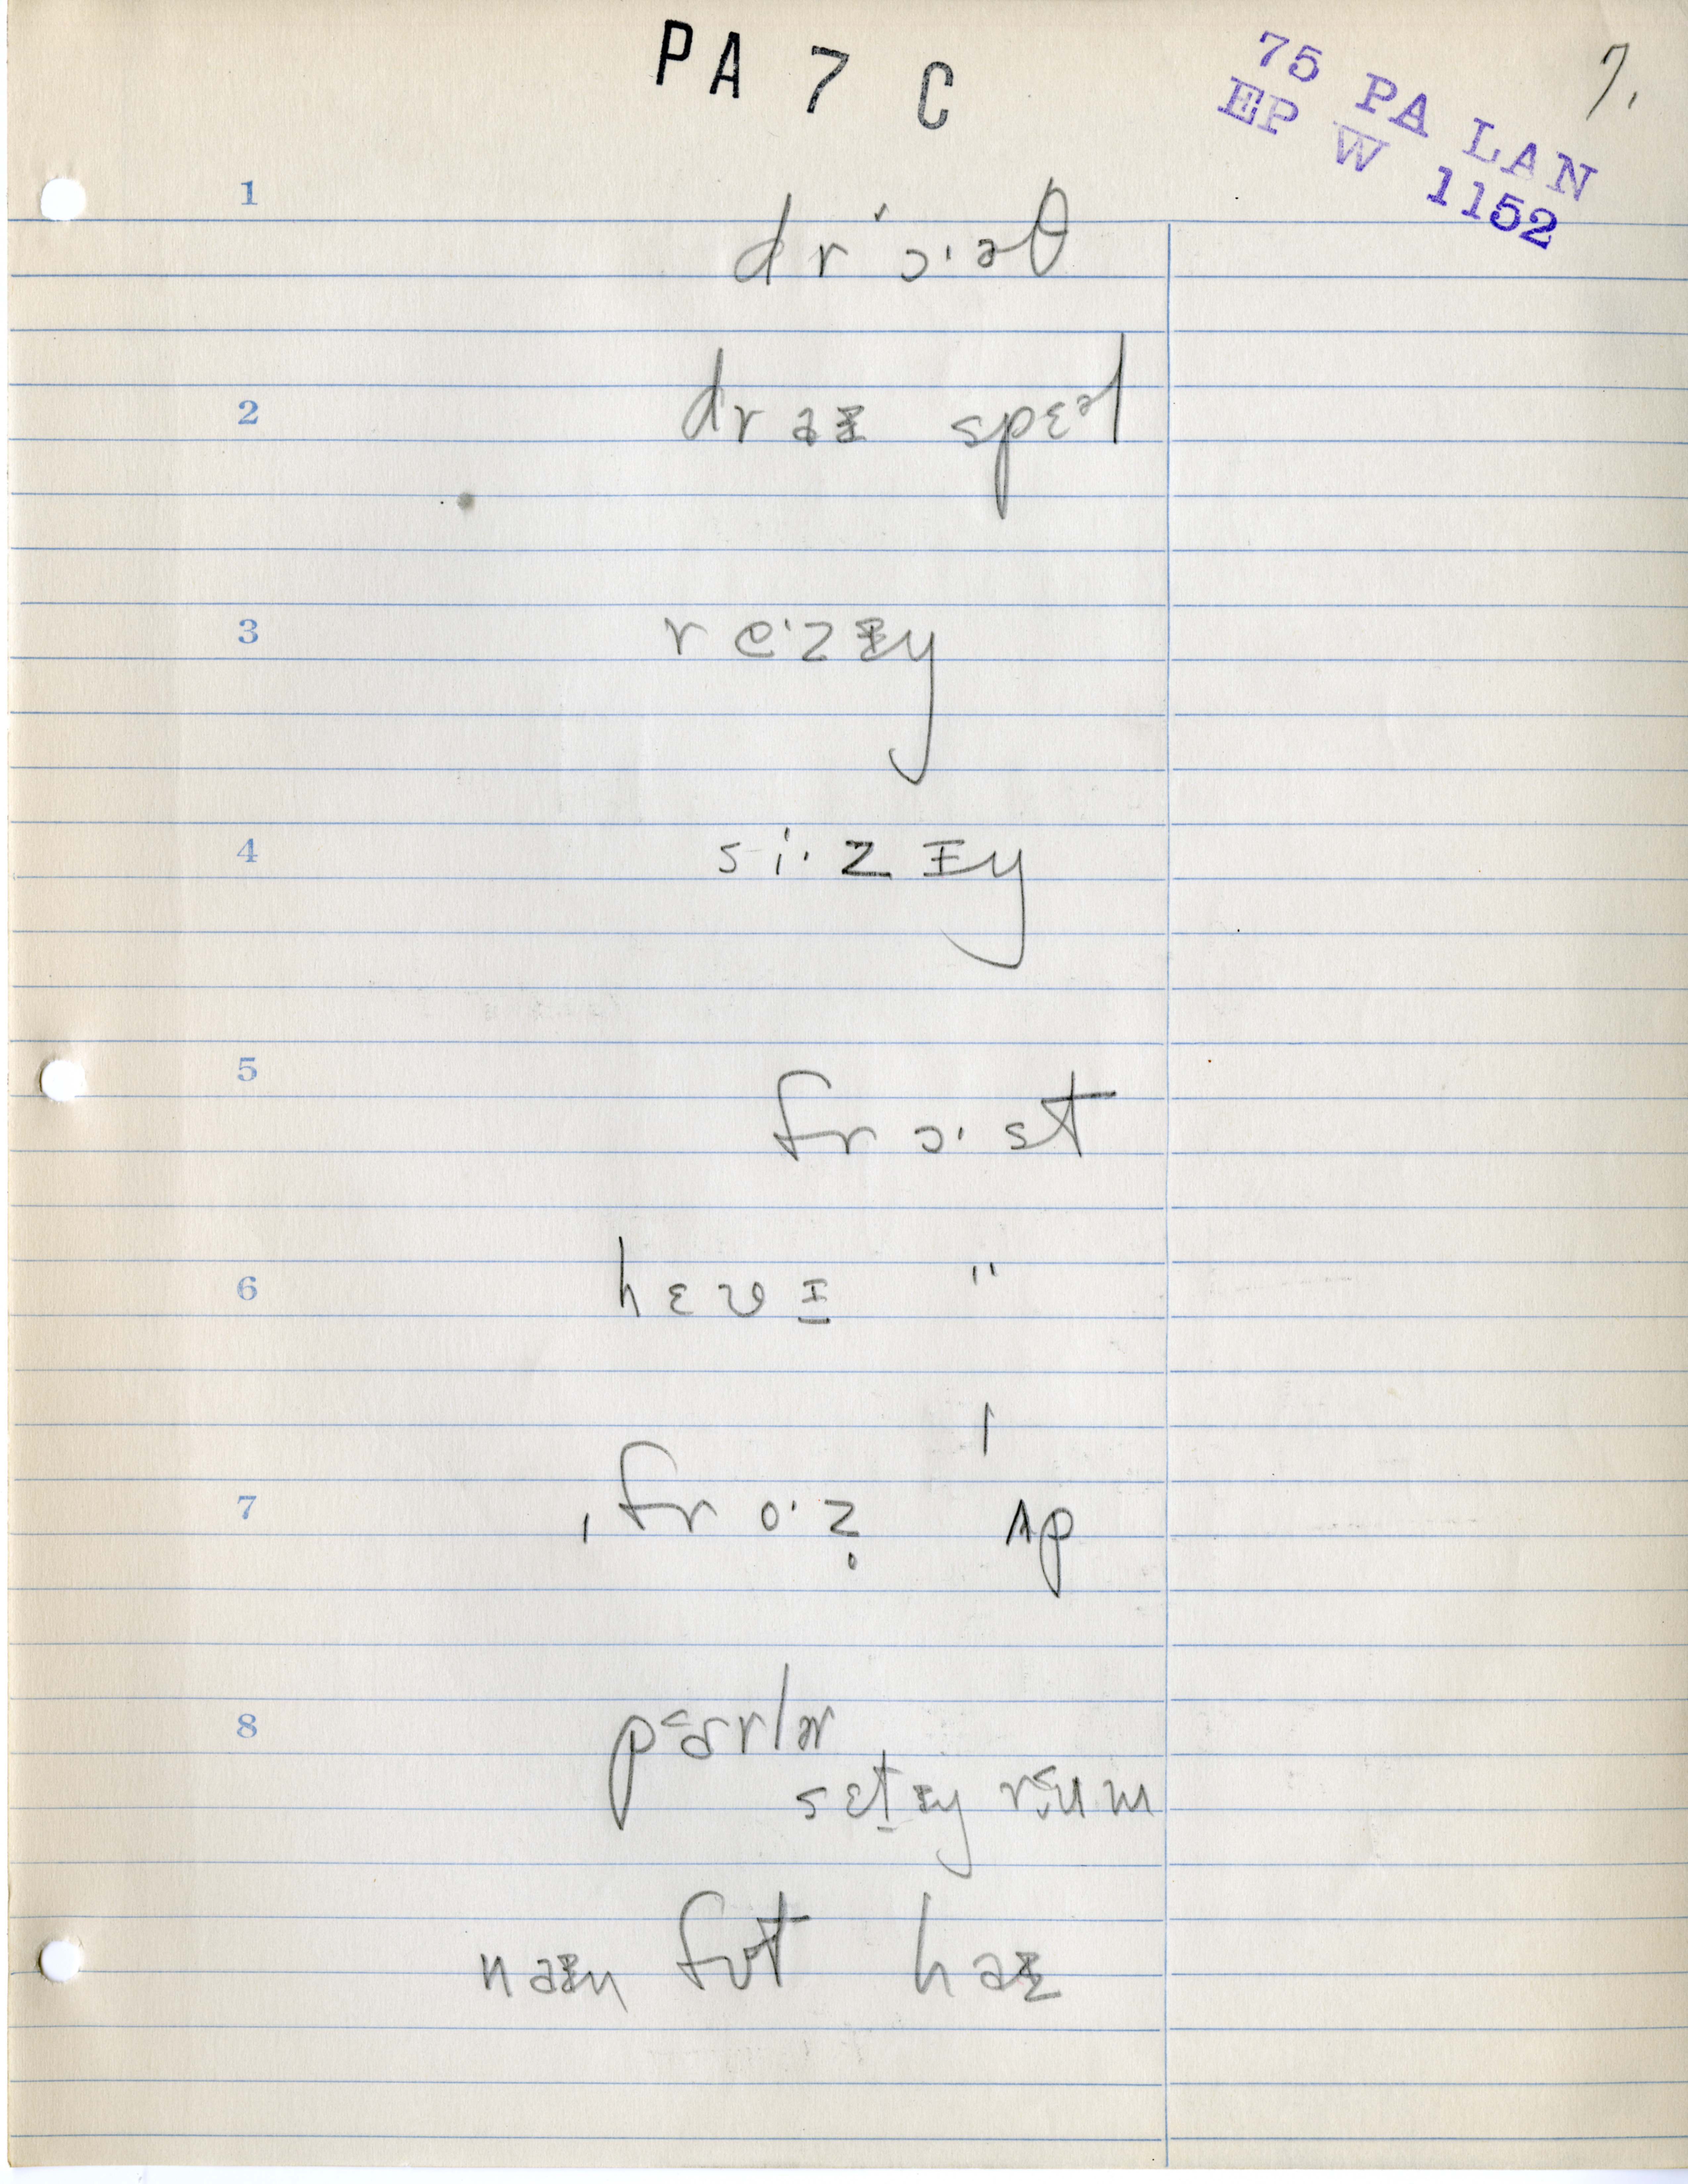 PA 7 C
75 PA LAN
EP W 1152
7.
1
drɔˈ·əθ
2
draɪ spɛəl
3
re·zɪŋ
4
si·zɪŋ
5
frɔ·st
6
hɛvɪ "
7
ˌfro·z̥ ˈʌp
8
pɑrlɚ
setɪŋ rum
naɪn fʊt haɪ